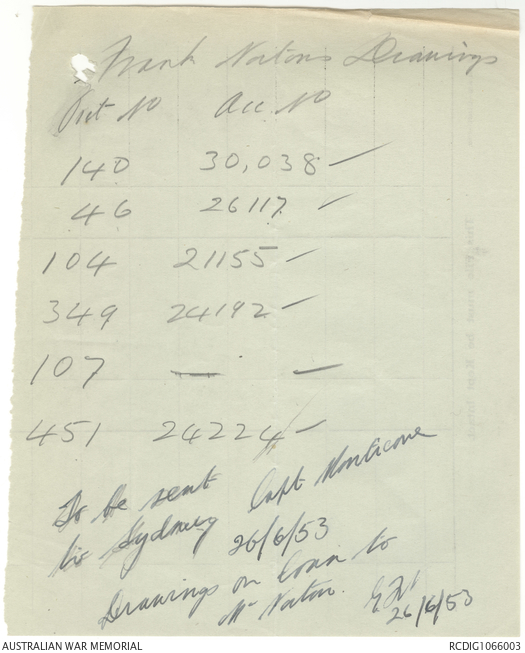 Frank Nortons Drawings
Pict No Acc. No
140 30,038
46 26117
104 21155
349 24192
107 —
451 24224
To be sent
to Sydney Capt
26/6/53
Drawings on loan to
Mr Norton.
26/6/53
AUSTRALIAN WAR MEMORIAL RCDIG1066003